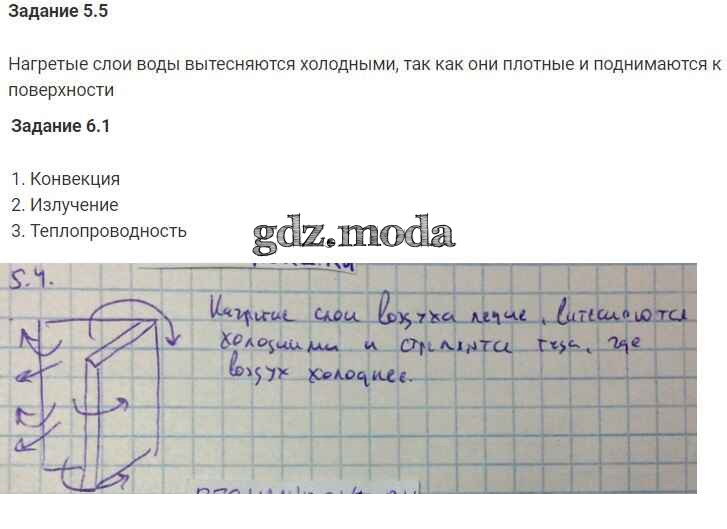 Задание 5.5
Нагретые слои воды вытесняются холодными, так как они плотные и поднимаются к
поверхности
Задание 6.1
1. Конвекция
2. Излучение
3. Теплопроводность
gdz.moda
5.4.
Нагретые слои воздуха легче, вытесняются
холодными и стремятся туда, где
воздух холоднее.